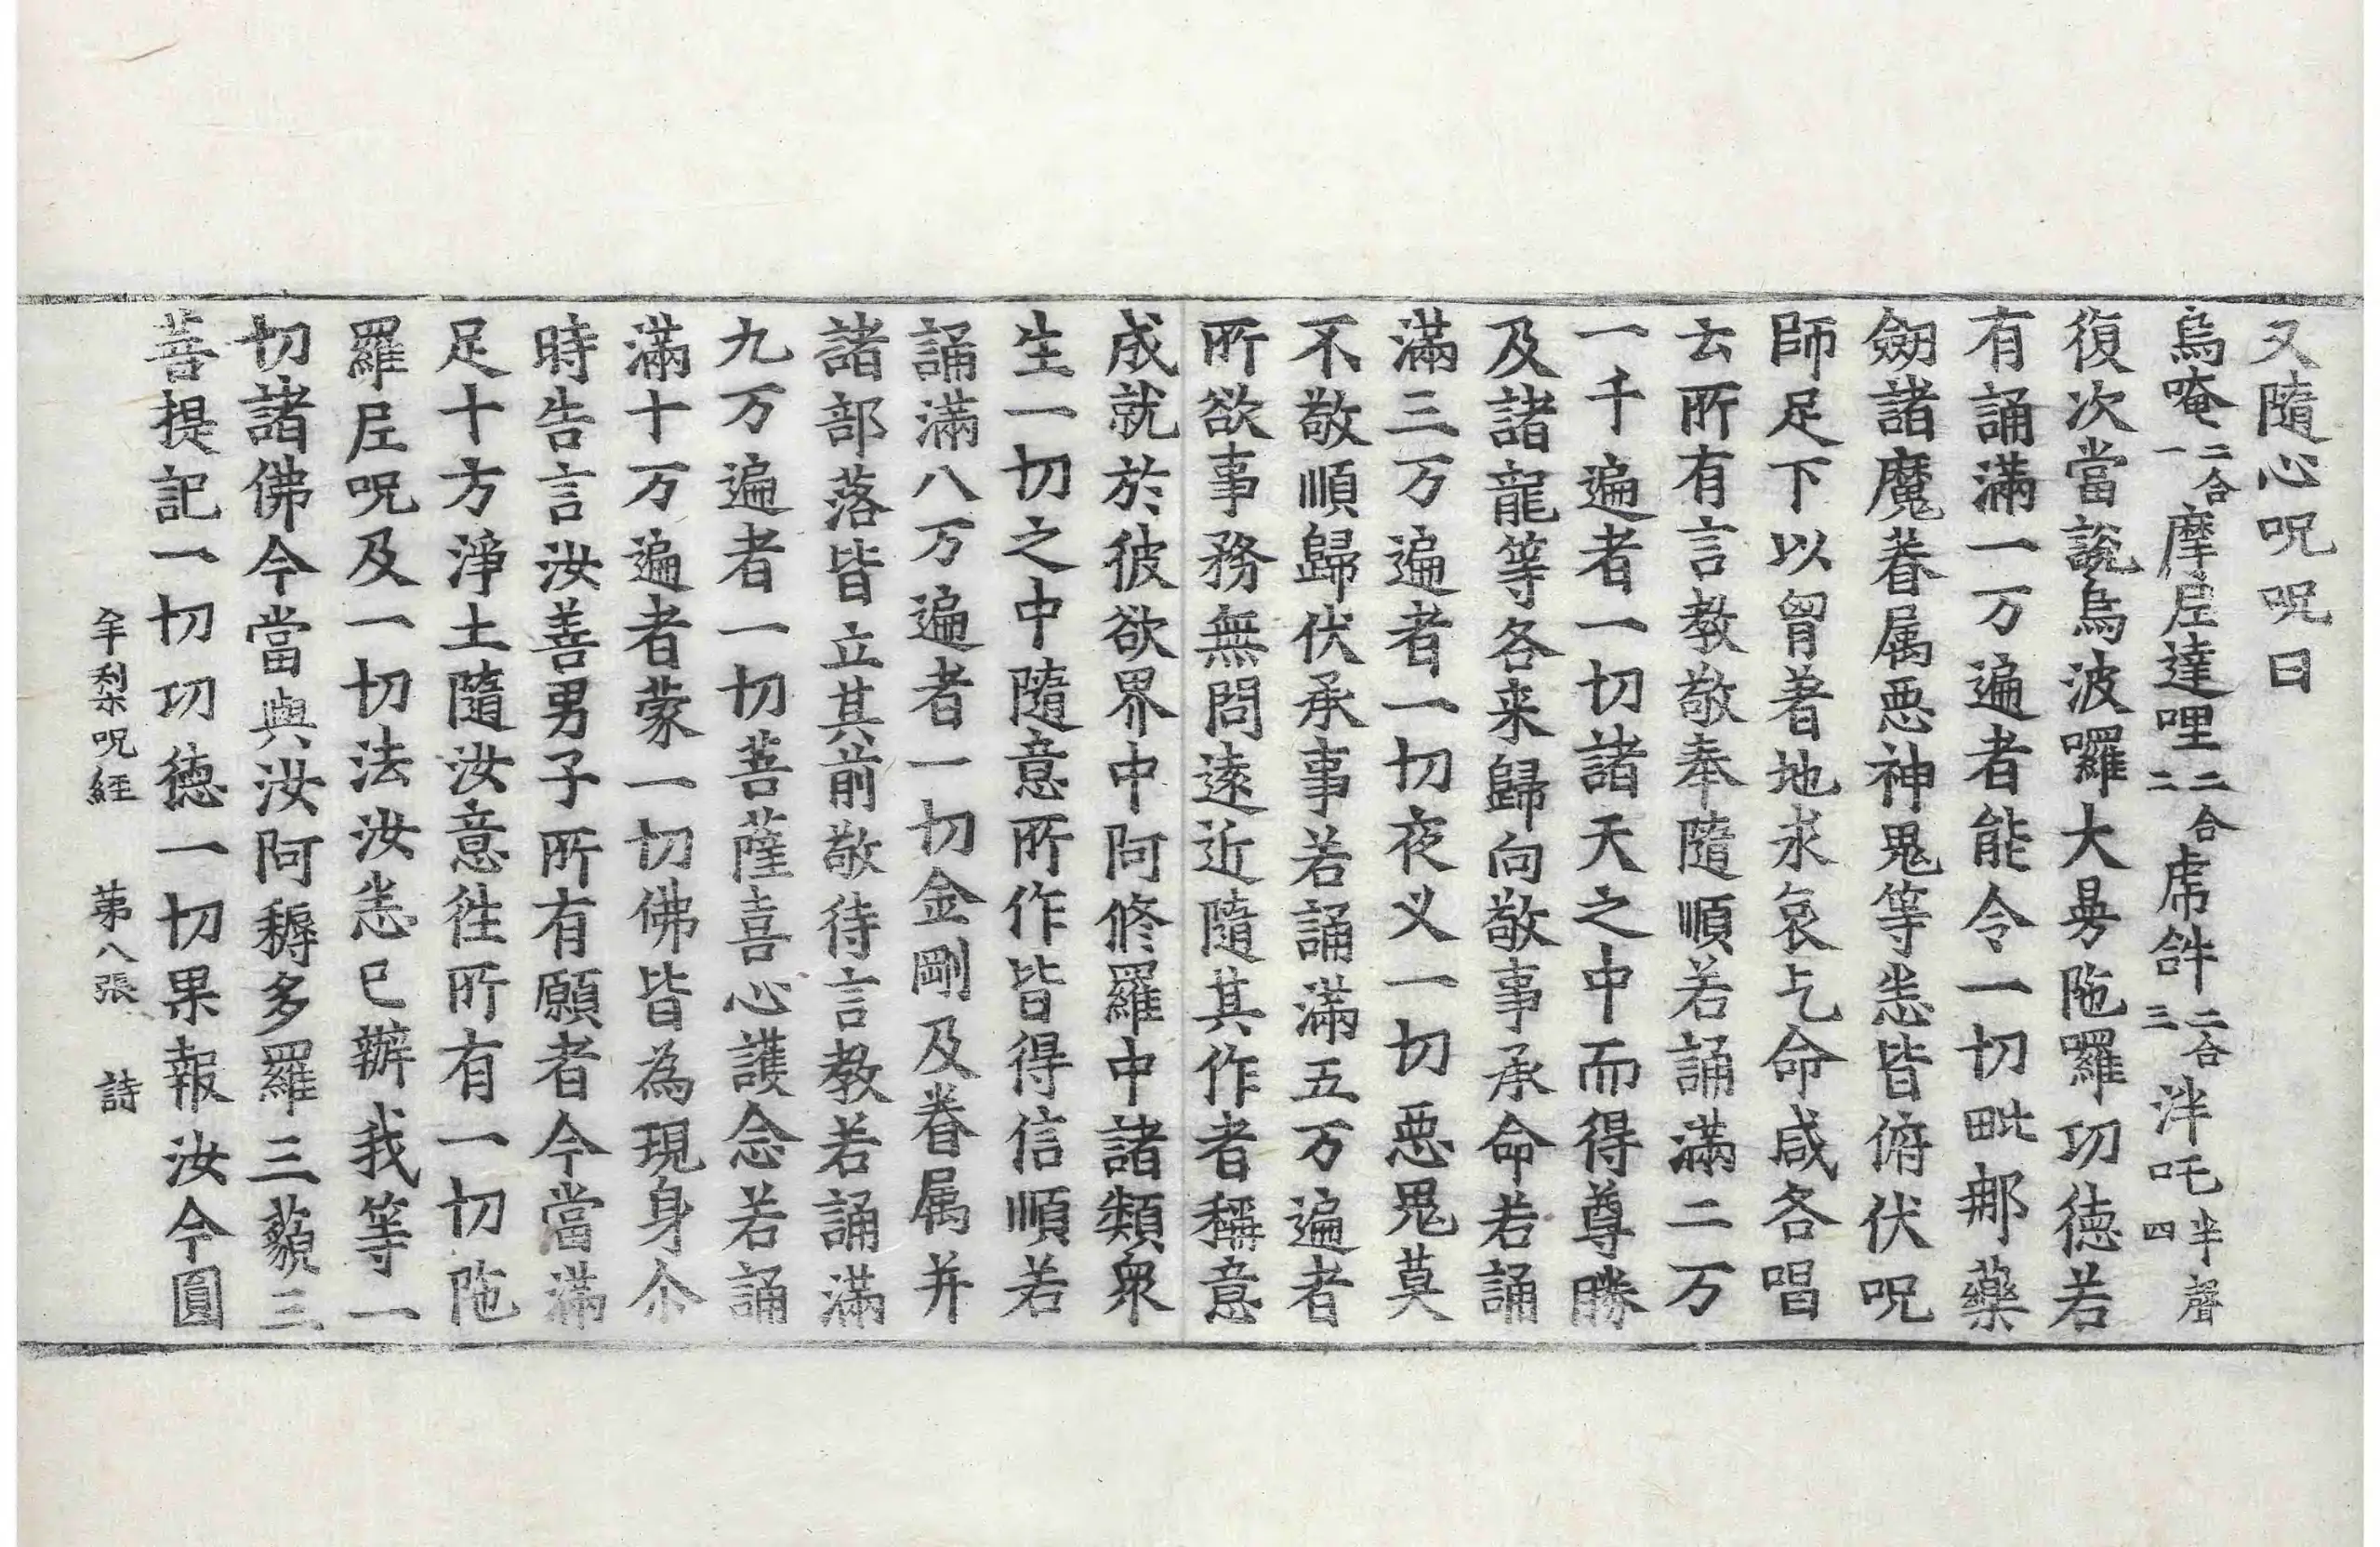 又隨心呪呪曰
烏唵二合一摩𡰱達哩二合二虎𤙖二合三泮吒半聲四
復次當說烏波囉大曼陁羅功德若
有誦滿一万遍者能令一切毗那藥
劒諸魔眷属惡神鬼等悉皆俯伏呪
師足下以胷著地求哀乞命咸各唱
云所有言教敬奉隨順若誦滿二万
一千遍者一切諸天之中而得尊勝
及諸龍等各来歸向敬事承命若誦
滿三万遍者一切夜叉一切惡鬼莫
不敬順歸伏承事若誦滿五万遍者
所欲事務無問遠近隨其作者稱意
成就於彼欲界中阿修羅中諸類衆
生一切之中隨意所作皆得信順若
誦滿八万遍者一切金剛及眷属并
諸部落皆立其前敬待言教若誦滿
九万遍者一切菩薩喜心護念若誦
滿十万遍者蒙一切佛皆為現身尒
時告言汝善男子所有願者今當滿
足十方淨土隨汝意徃所有一切陁
羅𡰱呪及一切法汝悉已辦我等一
切諸佛今當與汝阿耨多羅三藐三
菩提記一切功德一切果報汝今圓
牟梨呪經　第八張　詩